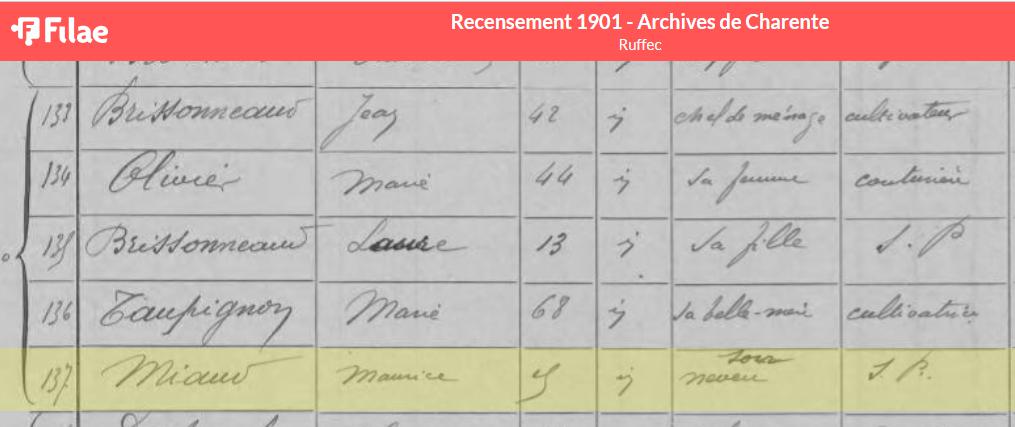 Filae
Recensement 1901 - Archives de Charente
Ruffec
133 Brissonneaud Jean 42 " chef de ménage cultivateur
134 Olivier Marie 44 " sa femme couturière
135 Brissonneaud Laure 13 " sa fille S. P
136 Taupignon Marie 68 " sa belle-mère cultivatrice
137 Miaud Maurice 5 " son neveu S. P.